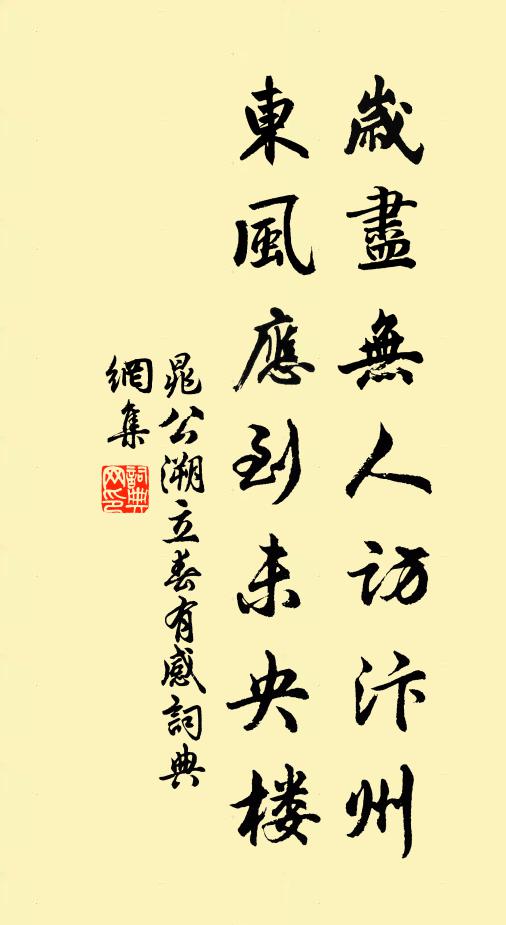 歲盡無人訪汴州
東風應到未央楼
晁公溯立春有感詞典
網集
詞典
网印